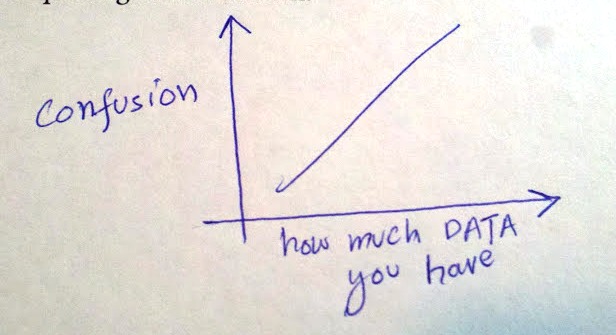 Confusion
how much DATA
you have